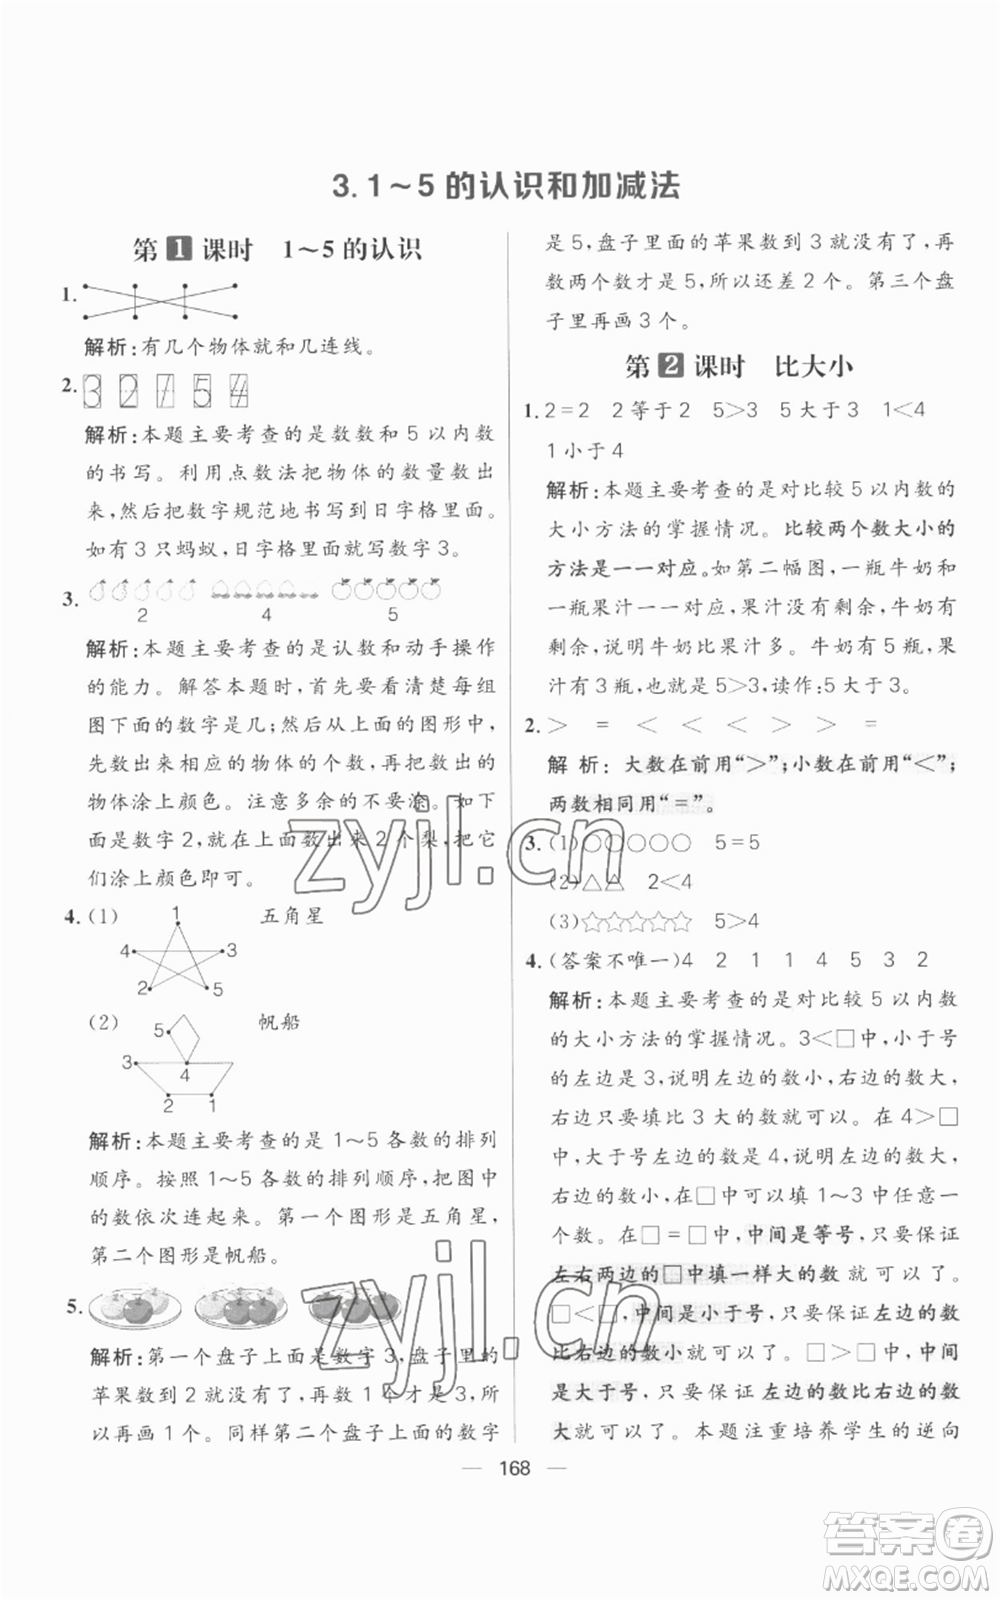 3. 1～5的认识和加减法
第1课时 1～5的认识
1.
解析:有几个物体就和几连线。
2. 3 2 1 5 4
解析:本题主要考查的是数数和5以内数
的书写。利用点数法把物体的数量数出
来,然后把数字规范地书写到日字格里面。
如有3只蚂蚁,日字格里面就写数字3。
3.
2 4 5
解析:本题主要考查的是认数和动手操作
的能力。解答本题时,首先要看清楚每组
图下面的数字是几;然后从上面的图形中,
先数出来相应的物体的个数,再把数出的
物体涂上颜色。注意多余的不要涂。如下
面是数字2,就在上面数出来2个梨,把它
们涂上颜色即可。
4. (1) 1 五角星
4 3
2 5
(2) 5 帆船
3 4
2 1
解析:本题主要考查的是1～5各数的排列
顺序。按照1～5各数的排列顺序,把图中
的数依次连起来。第一个图形是五角星,
第二个图形是帆船。
5.
解析:第一个盘子上面是数字3,盘子里的
苹果数到2就没有了,再数1个才是3,所
以再画1个。同样第二个盘子上面的数字
是5,盘子里面的苹果数到3就没有了,再
数两个数才是5,所以还差2个。第三个盘
子里再画3个。
第2课时 比大小
1. 2=2 2等于2 5>3 5大于3 1<4
1小于4
解析:本题主要考查的是对比较5以内数的
大小方法的掌握情况。比较两个数大小的
方法是一一对应。如第二幅图,一瓶牛奶和
一瓶果汁一一对应,果汁没有剩余,牛奶有
剩余,说明牛奶比果汁多。牛奶有5瓶,果
汁有3瓶,也就是5>3,读作:5大于3。
2. > = < < < > > =
解析:大数在前用“>”;小数在前用“<”;
两数相同用“=”。
3. (1)○○○○○ 5=5
(2)△△ 2<4
(3)☆☆☆☆☆ 5>4
4. (答案不唯一)4 2 1 1 4 5 3 2
解析:本题主要考查的是对比较5以内数
的大小方法的掌握情况。3<□中,小于号
的左边是3,说明左边的数小,右边的数大,
右边只要填比3大的数就可以了。在4>□
中,大于号左边的数是4,说明左边的数大,
右边的数小,在□中可以填1～3中任意一
个数。在□=□中,中间是等号,只要保证
左右两边的□中填一样大的数就可以了。
□<□中,中间是小于号,只要保证左边的数
比右边的数小就可以了。□>□中,中间
是大于号,只要保证左边的数比右边的数
大就可以了。本题注重培养学生的逆向
zyjl.cn
zyjl.cn
168
答案圈
MXQE.COM